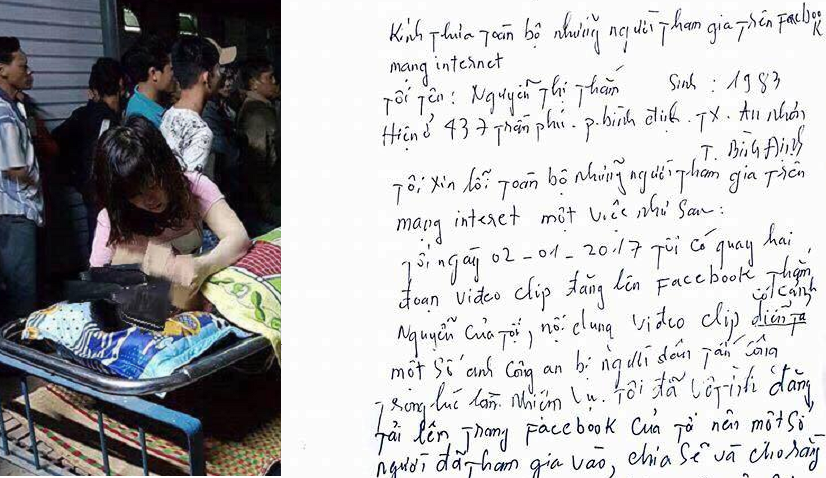 Kính Thưa Toàn bộ những người Tham gia Trên Facebook
mạng internet
Tôi Tên: Nguyễn Thị Thắm Sinh: 1983
Hiện ở 437 Trần phú. p. bình định. TX. An nhơn
T. Bình Định
Tôi xin lỗi Toàn bộ những người Tham gia Trên
mạng interset một việc như sau:
Tối ngày 02-01-2017 Tôi có quay hai
đoạn video clip đăng lên Facebook Thắm
Nguyễn của Tôi, nội dung video clip có cảnh diễn Tả
một số anh công an bị người dân Tấn công
Trong lúc làm nhiệm vụ. Tôi đã vô Tình đăng
Tải lên Trang Facebook của Tôi nên một số
người đã Tham gia vào, chia sẽ và cho rằng